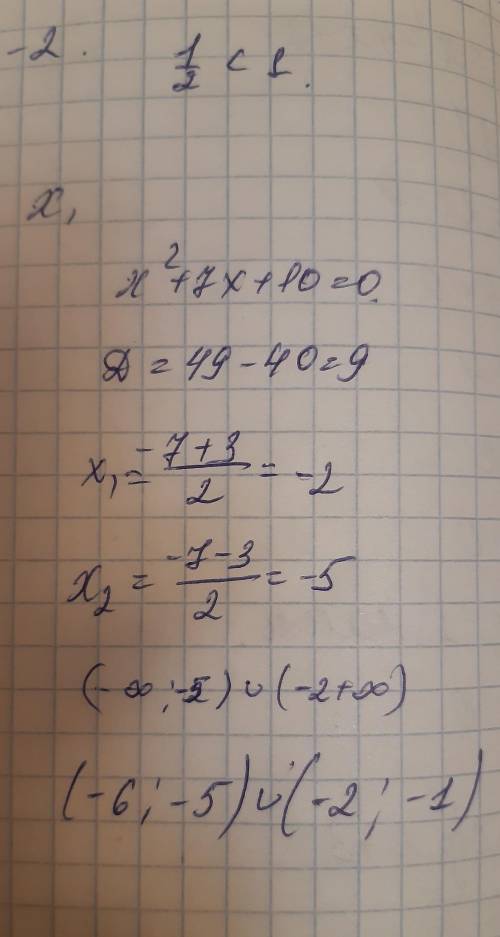 -2. 1/2 < 1.
x₁
x²+7x+10=0.
D = 49-40=9
x₁ = (-7+3)/2 = -2
x₂ = (-7-3)/2 = -5
(-∞;-5) ∪ (-2+∞)
(-6;-5) ∪ (-2;-1)